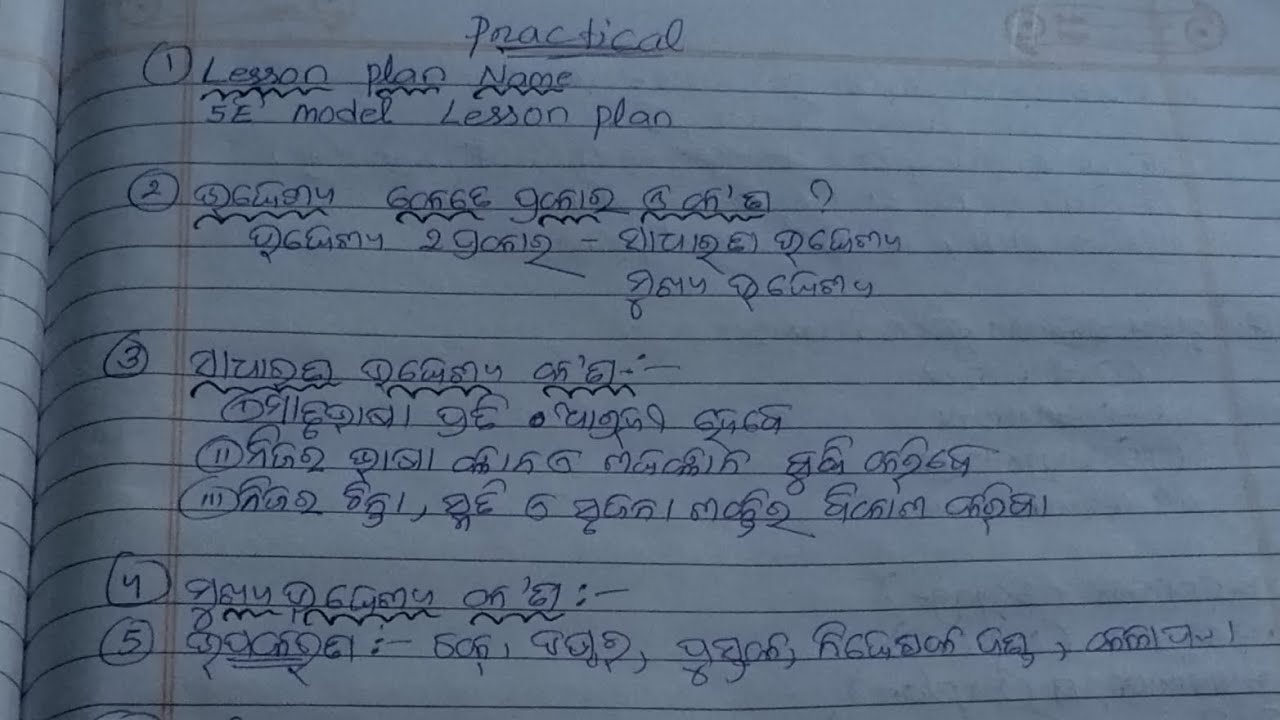 Practical
① Lesson plan Name
5E model Lesson plan
② ଉଦ୍ଦେଶ୍ୟ କେତେ ପ୍ରକାର ଓ କ'ଣ ?
ଉଦ୍ଦେଶ୍ୟ 2 ପ୍ରକାର - ସାଧାରଣ ଉଦ୍ଦେଶ୍ୟ
ମୁଖ୍ୟ ଉଦ୍ଦେଶ୍ୟ
③ ସାଧାରଣ ଉଦ୍ଦେଶ୍ୟ କ'ଣ :-
(i) ମାତୃଭାଷା ପ୍ରତି ହେବେ
(ii) ନିଜର ଭାଷା ଜ୍ଞାନ ଓ ଶବ୍ଦଜ୍ଞାନ ବୃଦ୍ଧି କରିବେ
(iii) ନିଜର ଚିନ୍ତା, ସ୍ମୃତି ଓ ସୃଜନୀ ଶକ୍ତିର ବିକାଶ କରିବା
④ ମୁଖ୍ୟ ଉଦ୍ଦେଶ୍ୟ କ'ଣ :-
⑤ ଉପକରଣ :- ଚକ୍, ଡଷ୍ଟର, ପୁସ୍ତକ, ନିର୍ଦ୍ଦେଶକ ଦଣ୍ଡ, କଳାପଟା